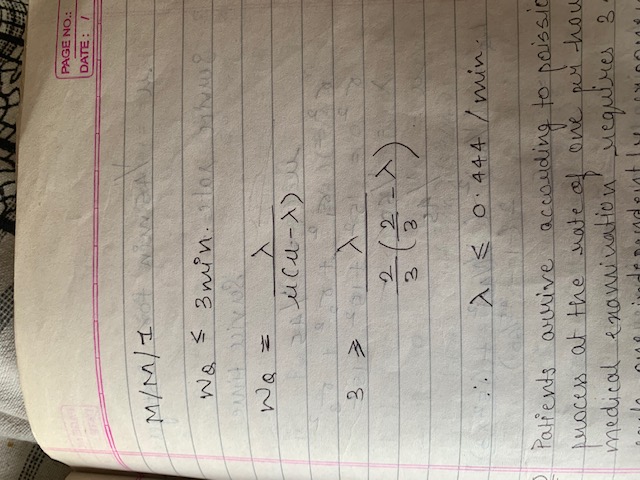 PAGE NO.:
DATE: /
M/M/1
WQ ≤ 3 min.
WQ = λ / μ(μ-λ)
3 ≥ λ / 2/3 (2/3 - λ)
∴ λ ≤ 0.444 / min.
Patients arrive according to poissio
process at the rate of one per hou
medical examination requires 3